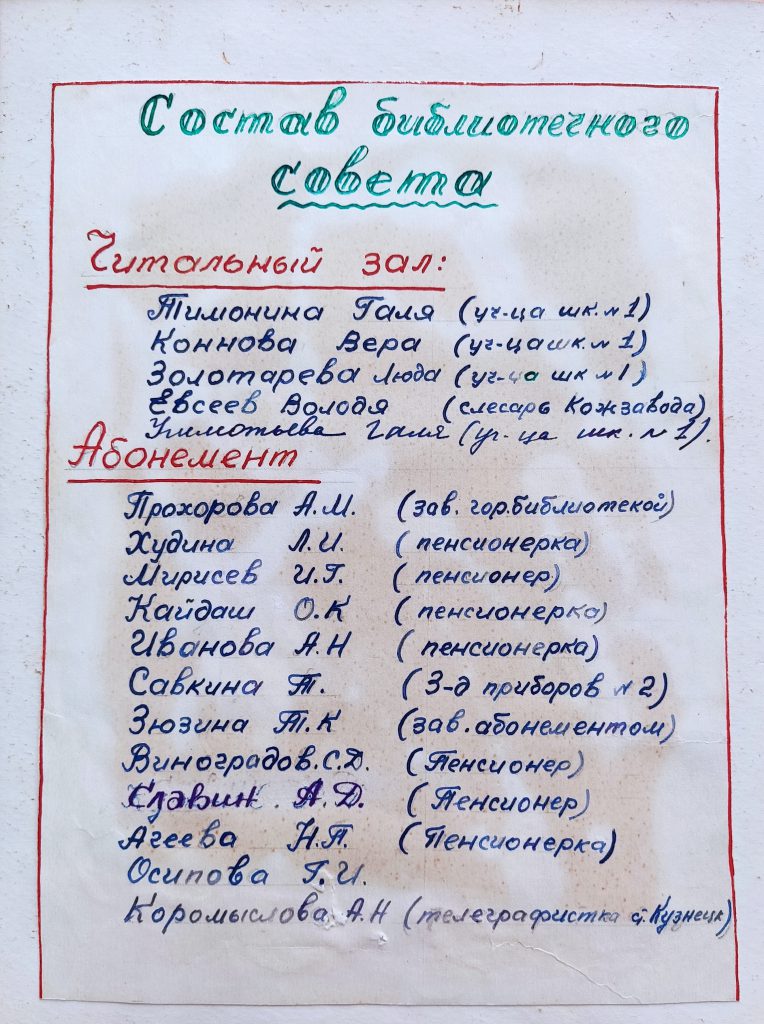 Состав библиотечного
совета
Читальный зал:
Тимонина Галя (уч-ца шк. №1)
Коннова Вера (уч-ца шк. №1)
Золотарева Люда (уч-ца шк №1)
Евсеев Володя (слесарь Кожзавода)
Галя (уч-ца шк. №1).
Абонемент
Прохорова А.М. (зав. гор.библиотекой)
Худина Л.И. (пенсионерка)
Мирисев И.Г. (пенсионер)
Кайдаш О.К (пенсионерка)
Иванова А.Н (пенсионерка)
Савкина Т. (З-д приборов №2)
Зюзина Т.К (зав.абонементом)
Виноградов.С.Д. (Пенсионер)
Славин. А.Д. (Пенсионер)
Агеева Н.П. (Пенсионерка)
Осипова Г.И.
Коромыслова А.Н (телеграфистка ст. Кузнецк)